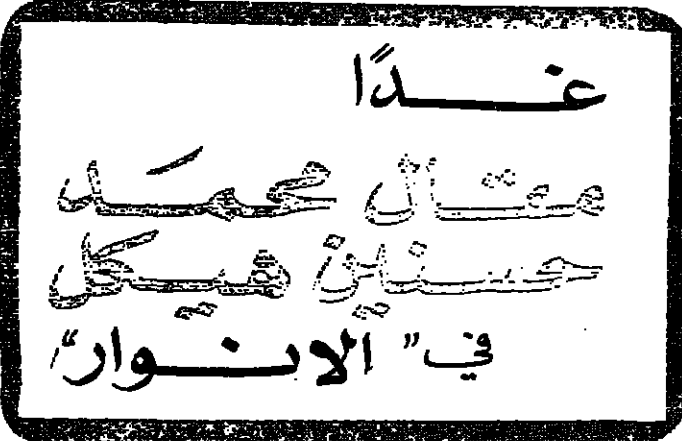 غدًا
مقال محمَد
حسنين هيكل
في "الانوار"